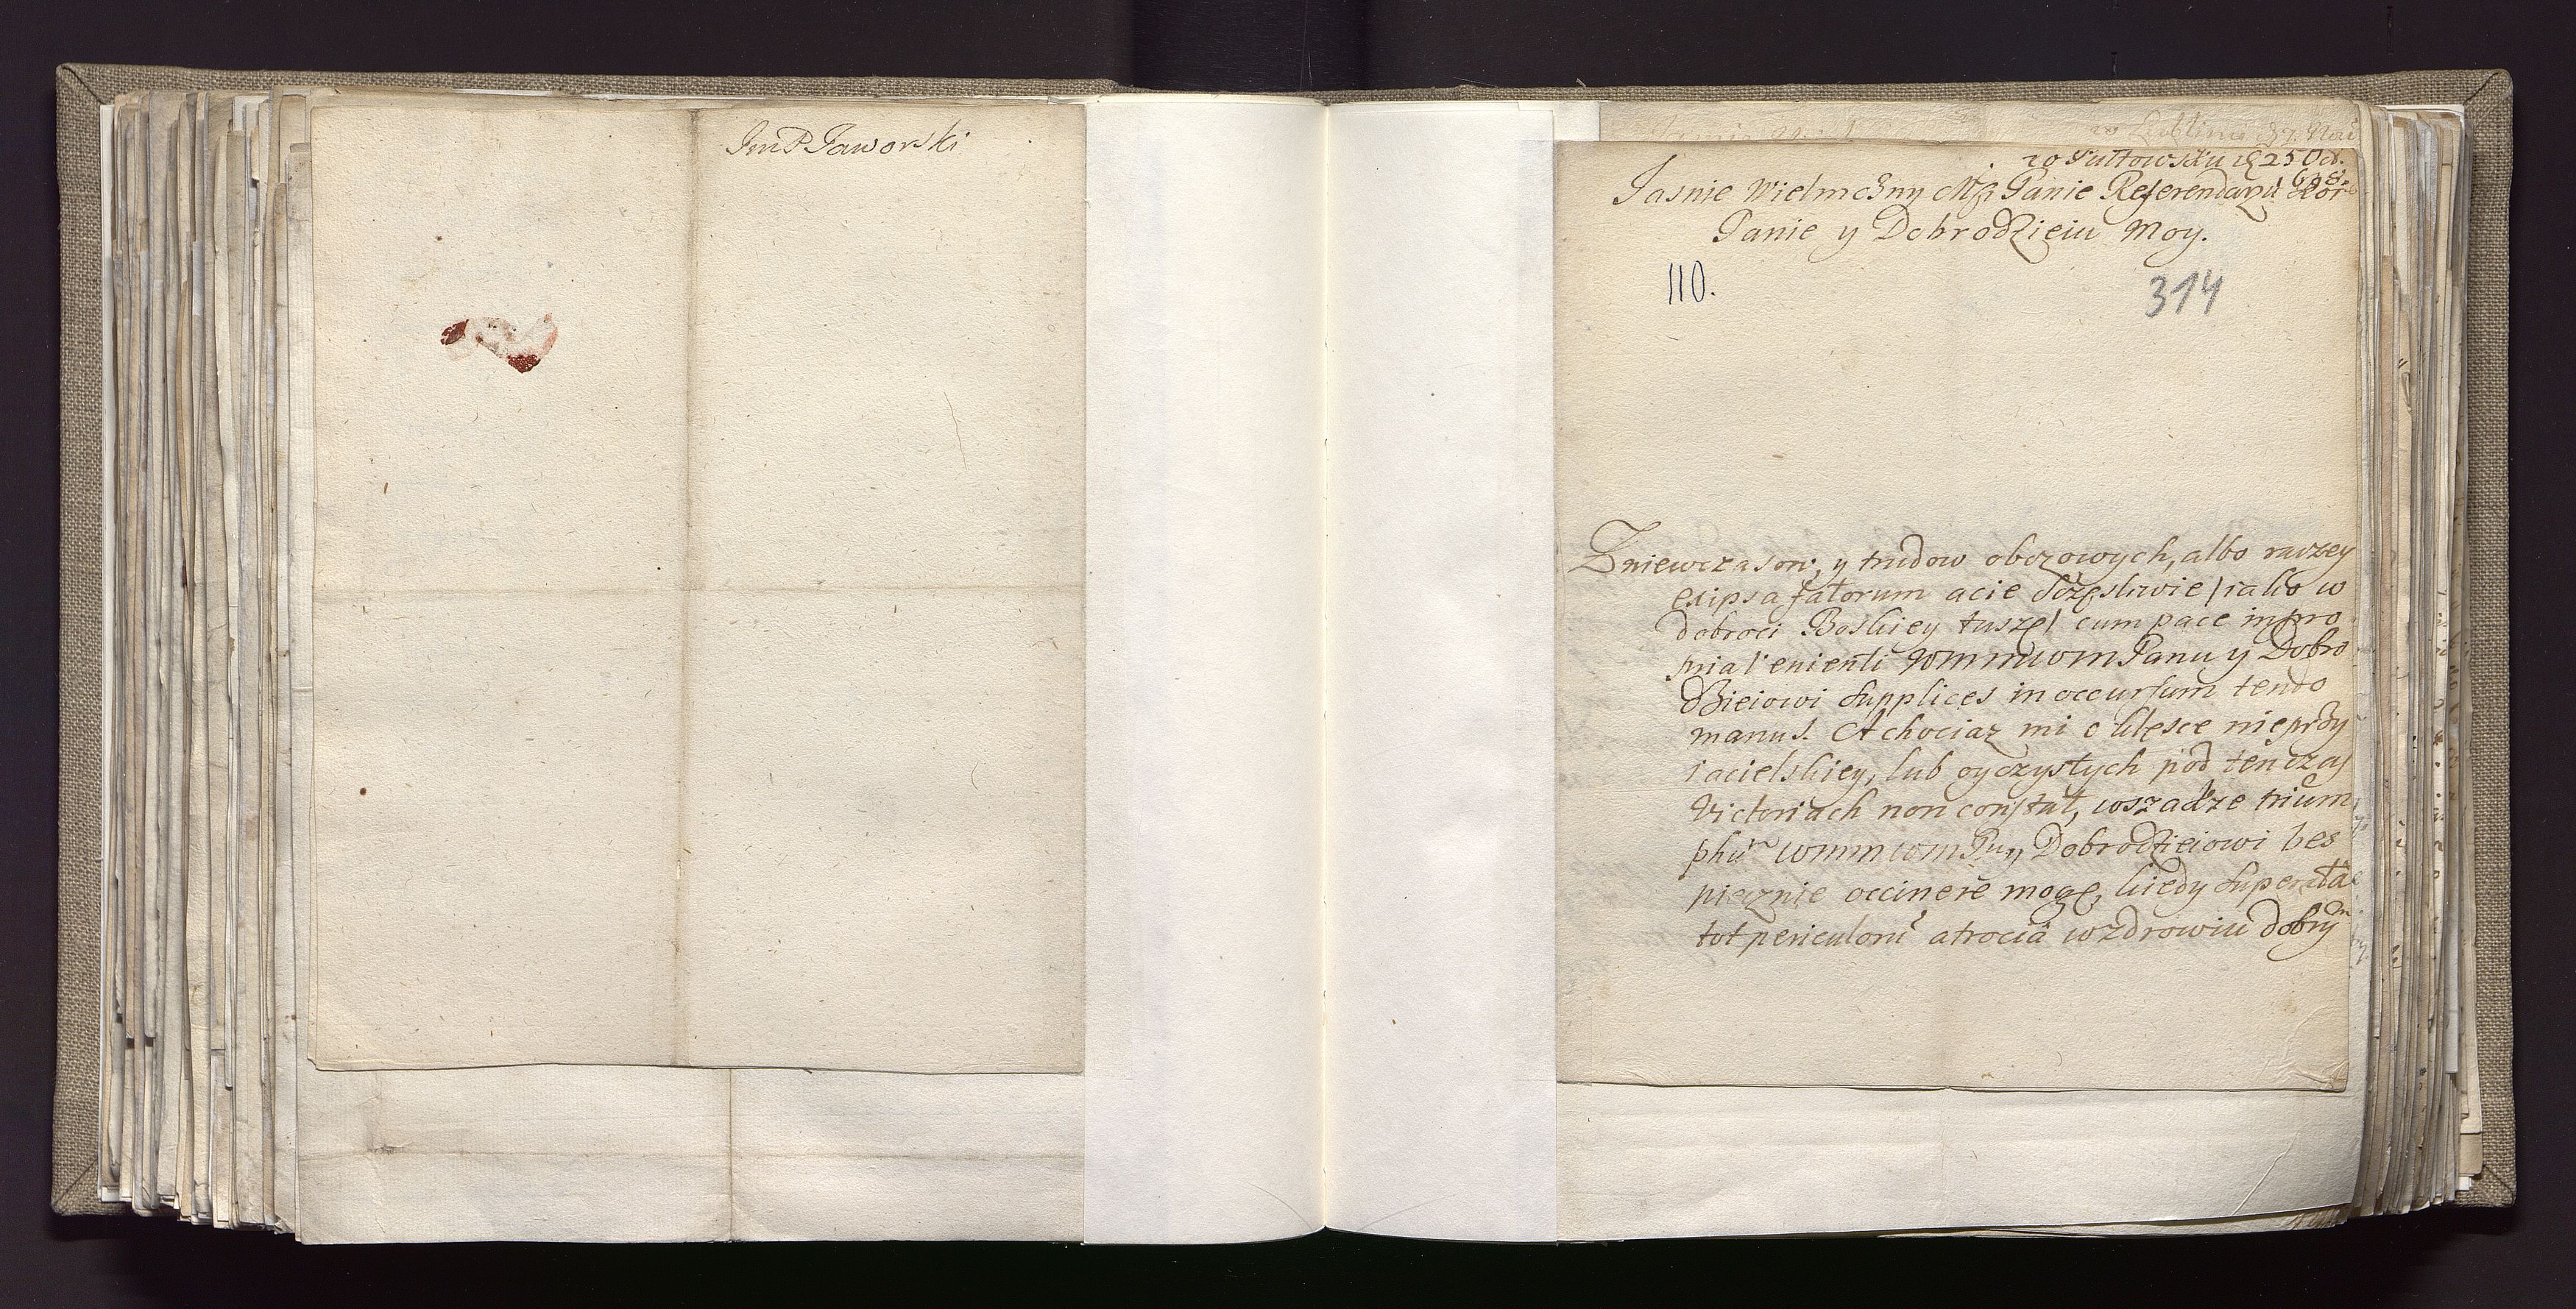 JmP Jaworski
w Lublinie
w Pułtowsku 25 Oct.
Jasnie Wielmożny Mśi Panie Referendarzu Kor
Panie y Dobrodzieiu Moy.
110.
314
Zniewczasow, y trudow obozowych, albo raczey
exipsa fatorum acie szczęsliwie / iako w
dobroci Boskiey tuszę / cum pace in pro
pria venienti WMMWMPanu y Dobro
dzieiowi supplices in occursum tendo
manus. A chociaz mi o klęsce nieprzy
iacielskiey, lub oyczystych pod ten czas
Victoriach non constat, wszakze trium
phu WMMWMPu y Dobrodzieiowi bes
piecznie occinere mogę, kiedy superata
tot periculoru atrocia w zdrowiu dobrym